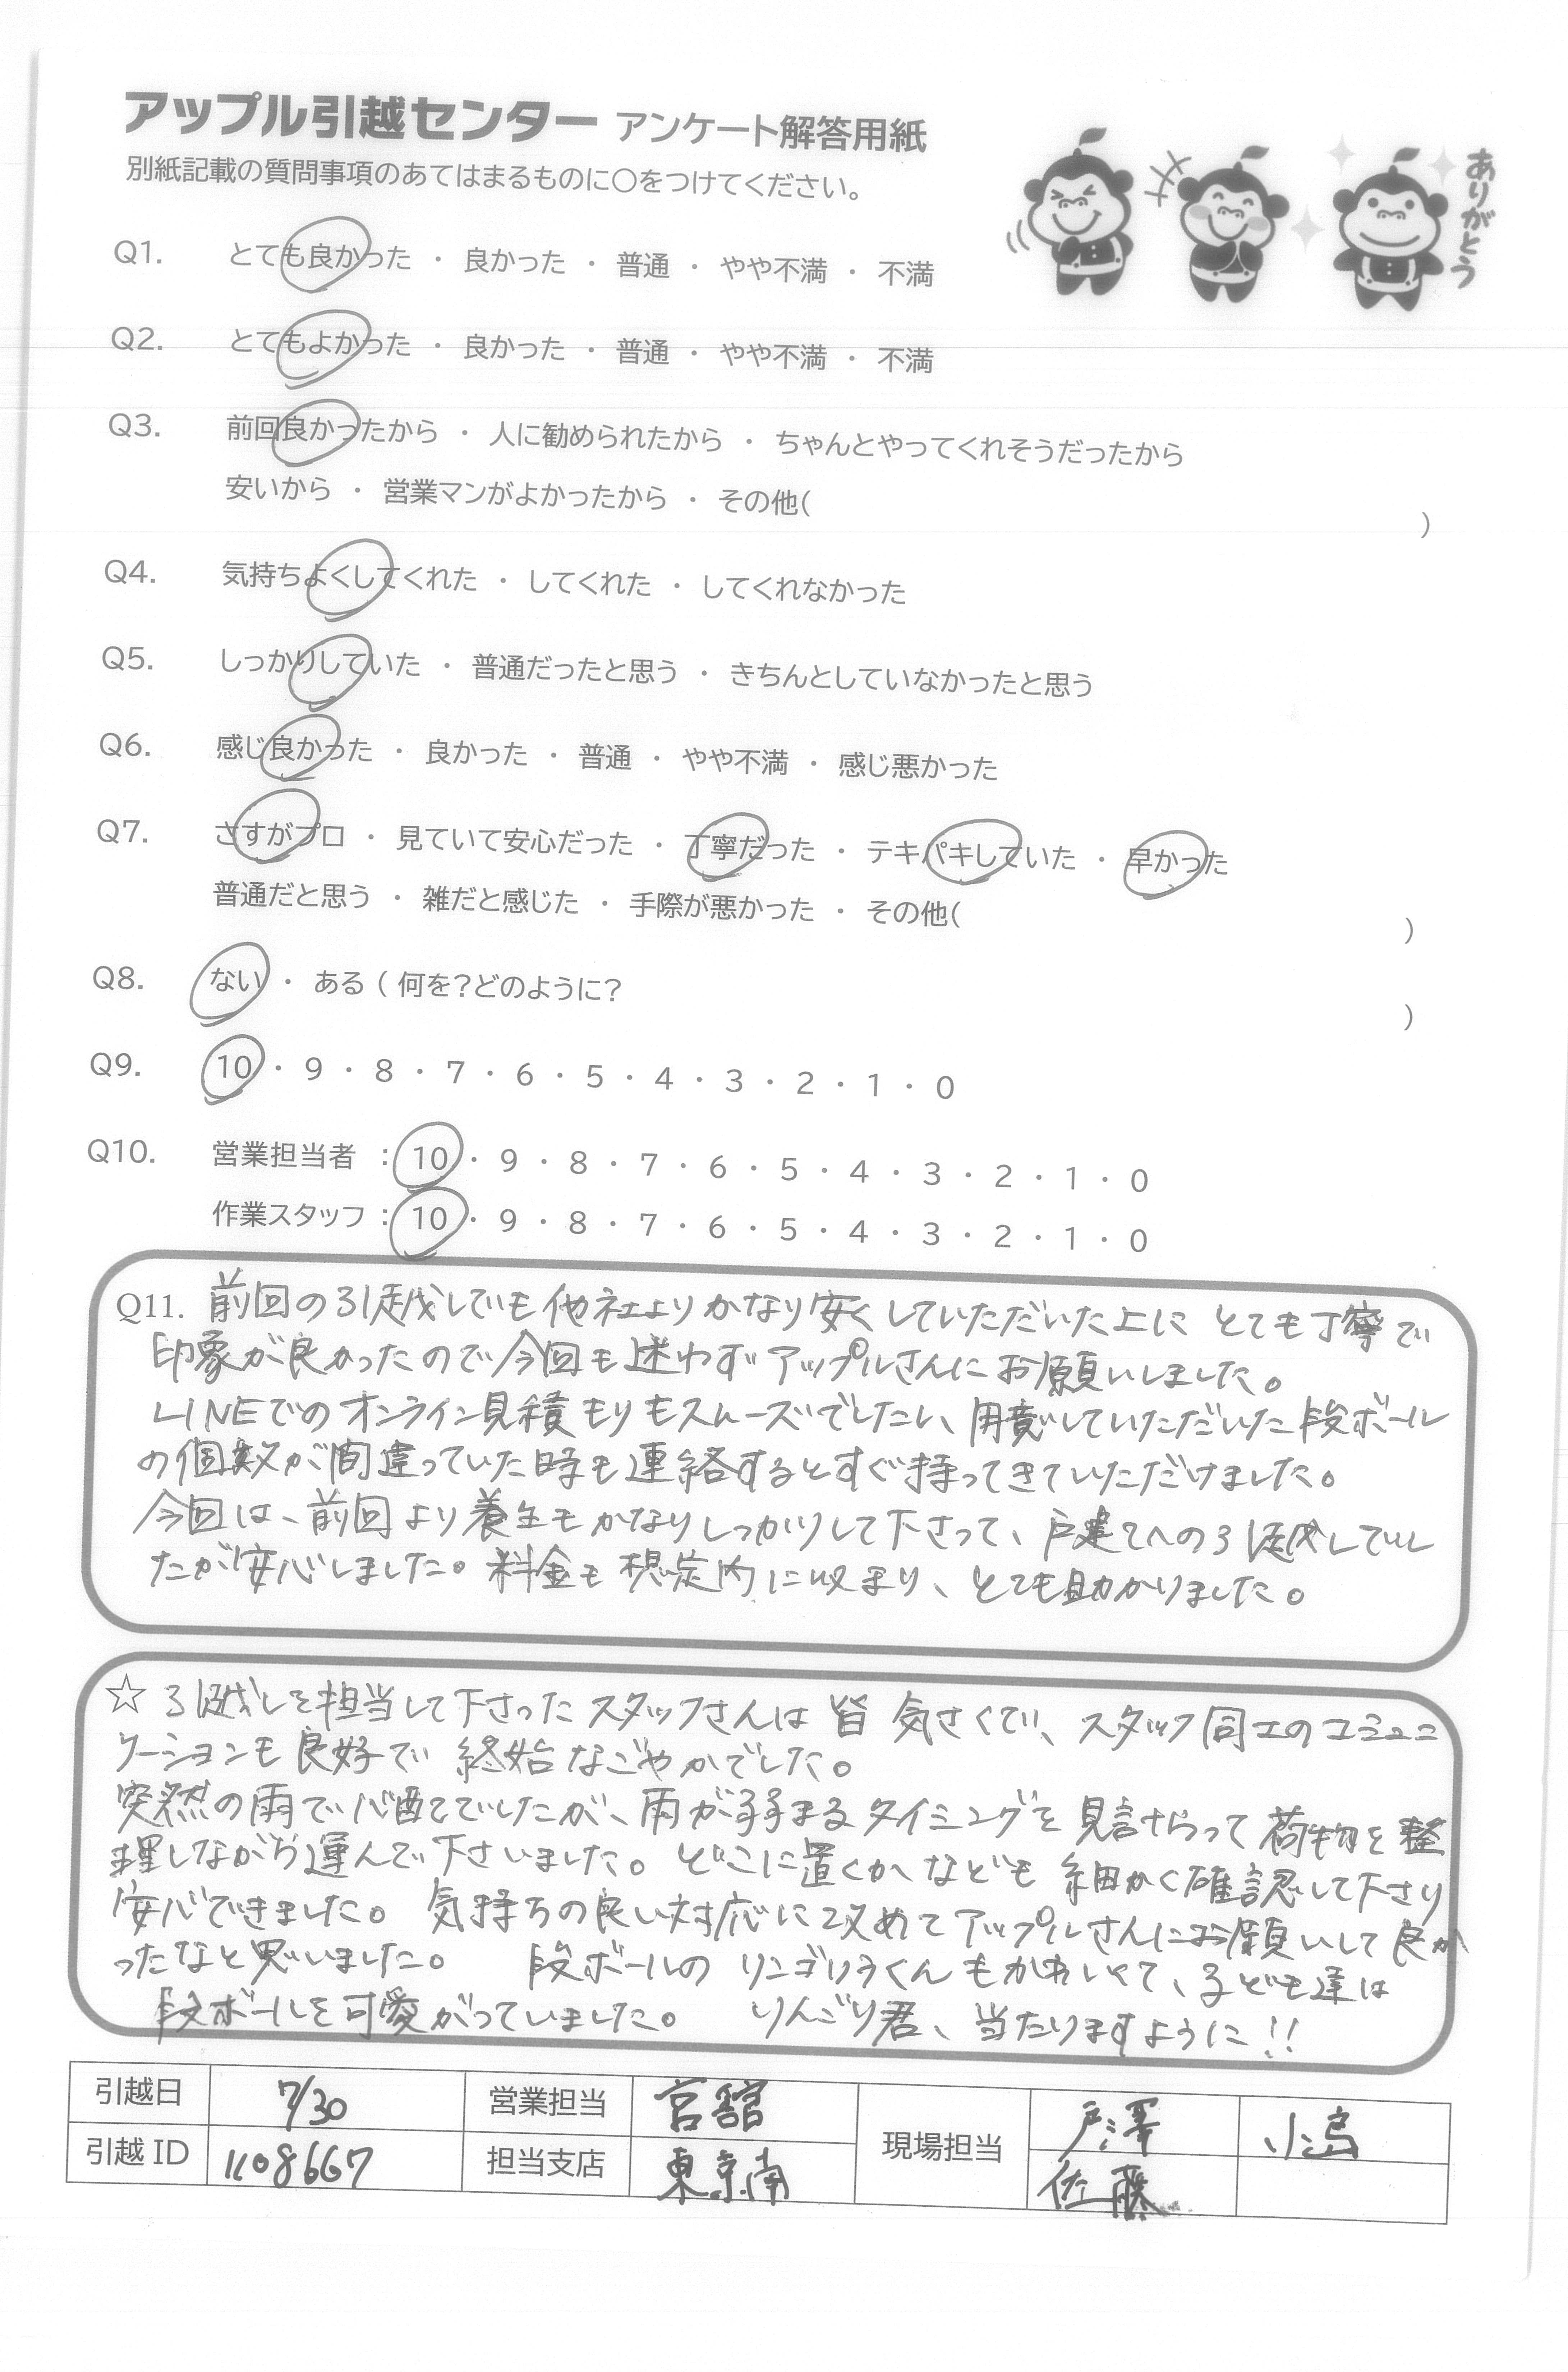 アップル引越センター アンケート解答用紙
別紙記載の質問事項のあてはまるものに○をつけてください。
ありがとう
Q1. とても良かった ・ 良かった ・ 普通 ・ やや不満 ・ 不満
Q2. とてもよかった ・ 良かった ・ 普通 ・ やや不満 ・ 不満
Q3. 前回良かったから ・ 人に勧められたから ・ ちゃんとやってくれそうだったから
安いから ・ 営業マンがよかったから ・ その他( )
Q4. 気持ちよくしてくれた ・ してくれた ・ してくれなかった
Q5. しっかりしていた ・ 普通だったと思う ・ きちんとしていなかったと思う
Q6. 感じ良かった ・ 良かった ・ 普通 ・ やや不満 ・ 感じ悪かった
Q7. さすがプロ ・ 見ていて安心だった ・ 丁寧だった ・ テキパキしていた ・ 早かった
普通だと思う ・ 雑だと感じた ・ 手際が悪かった ・ その他( )
Q8. ない ・ ある ( 何を?どのように? )
Q9. 10 ・ 9 ・ 8 ・ 7 ・ 6 ・ 5 ・ 4 ・ 3 ・ 2 ・ 1 ・ 0
Q10. 営業担当者 : 10 ・ 9 ・ 8 ・ 7 ・ 6 ・ 5 ・ 4 ・ 3 ・ 2 ・ 1 ・ 0
作業スタッフ : 10 ・ 9 ・ 8 ・ 7 ・ 6 ・ 5 ・ 4 ・ 3 ・ 2 ・ 1 ・ 0
Q11. 前回の引越しでも他社よりかなり安くしていただいた上に とても丁寧で
印象が良かったので今回も迷わずアップルさんにお願いしました。
LINEでのオンライン見積もりもスムーズでしたし、用意していただいた段ボール
の個数が間違っていた時も連絡するとすぐ持ってきていただけました。
今回は、前回より養生もかなりしっかりして下さって、戸建てへの引越しでし
たが安心しました。料金も想定内に収まり、とても助かりました。
☆ 引越しを担当して下さったスタッフさんは皆 気さくで、スタッフ同士のコミュニ
ケーションも良好で 終始なごやかでした。
突然の雨で心配でしたが、雨が弱まるタイミングを見計らって荷物を整
理しながら運んで下さいました。どこに置くかなども細かく確認して下さり
安心できました。気持ちの良い対応に改めてアップルさんにお願いして良か
ったなと思いました。 段ボールの リンゴりらくんもかわいくて、子ども達は
段ボールを可愛がっていました。 りんごり君、当たりますように!!
引越日 7/30 営業担当 宮舘 現場担当 戸澤 小島
引越 ID 1108667 担当支店 東京南 佐藤